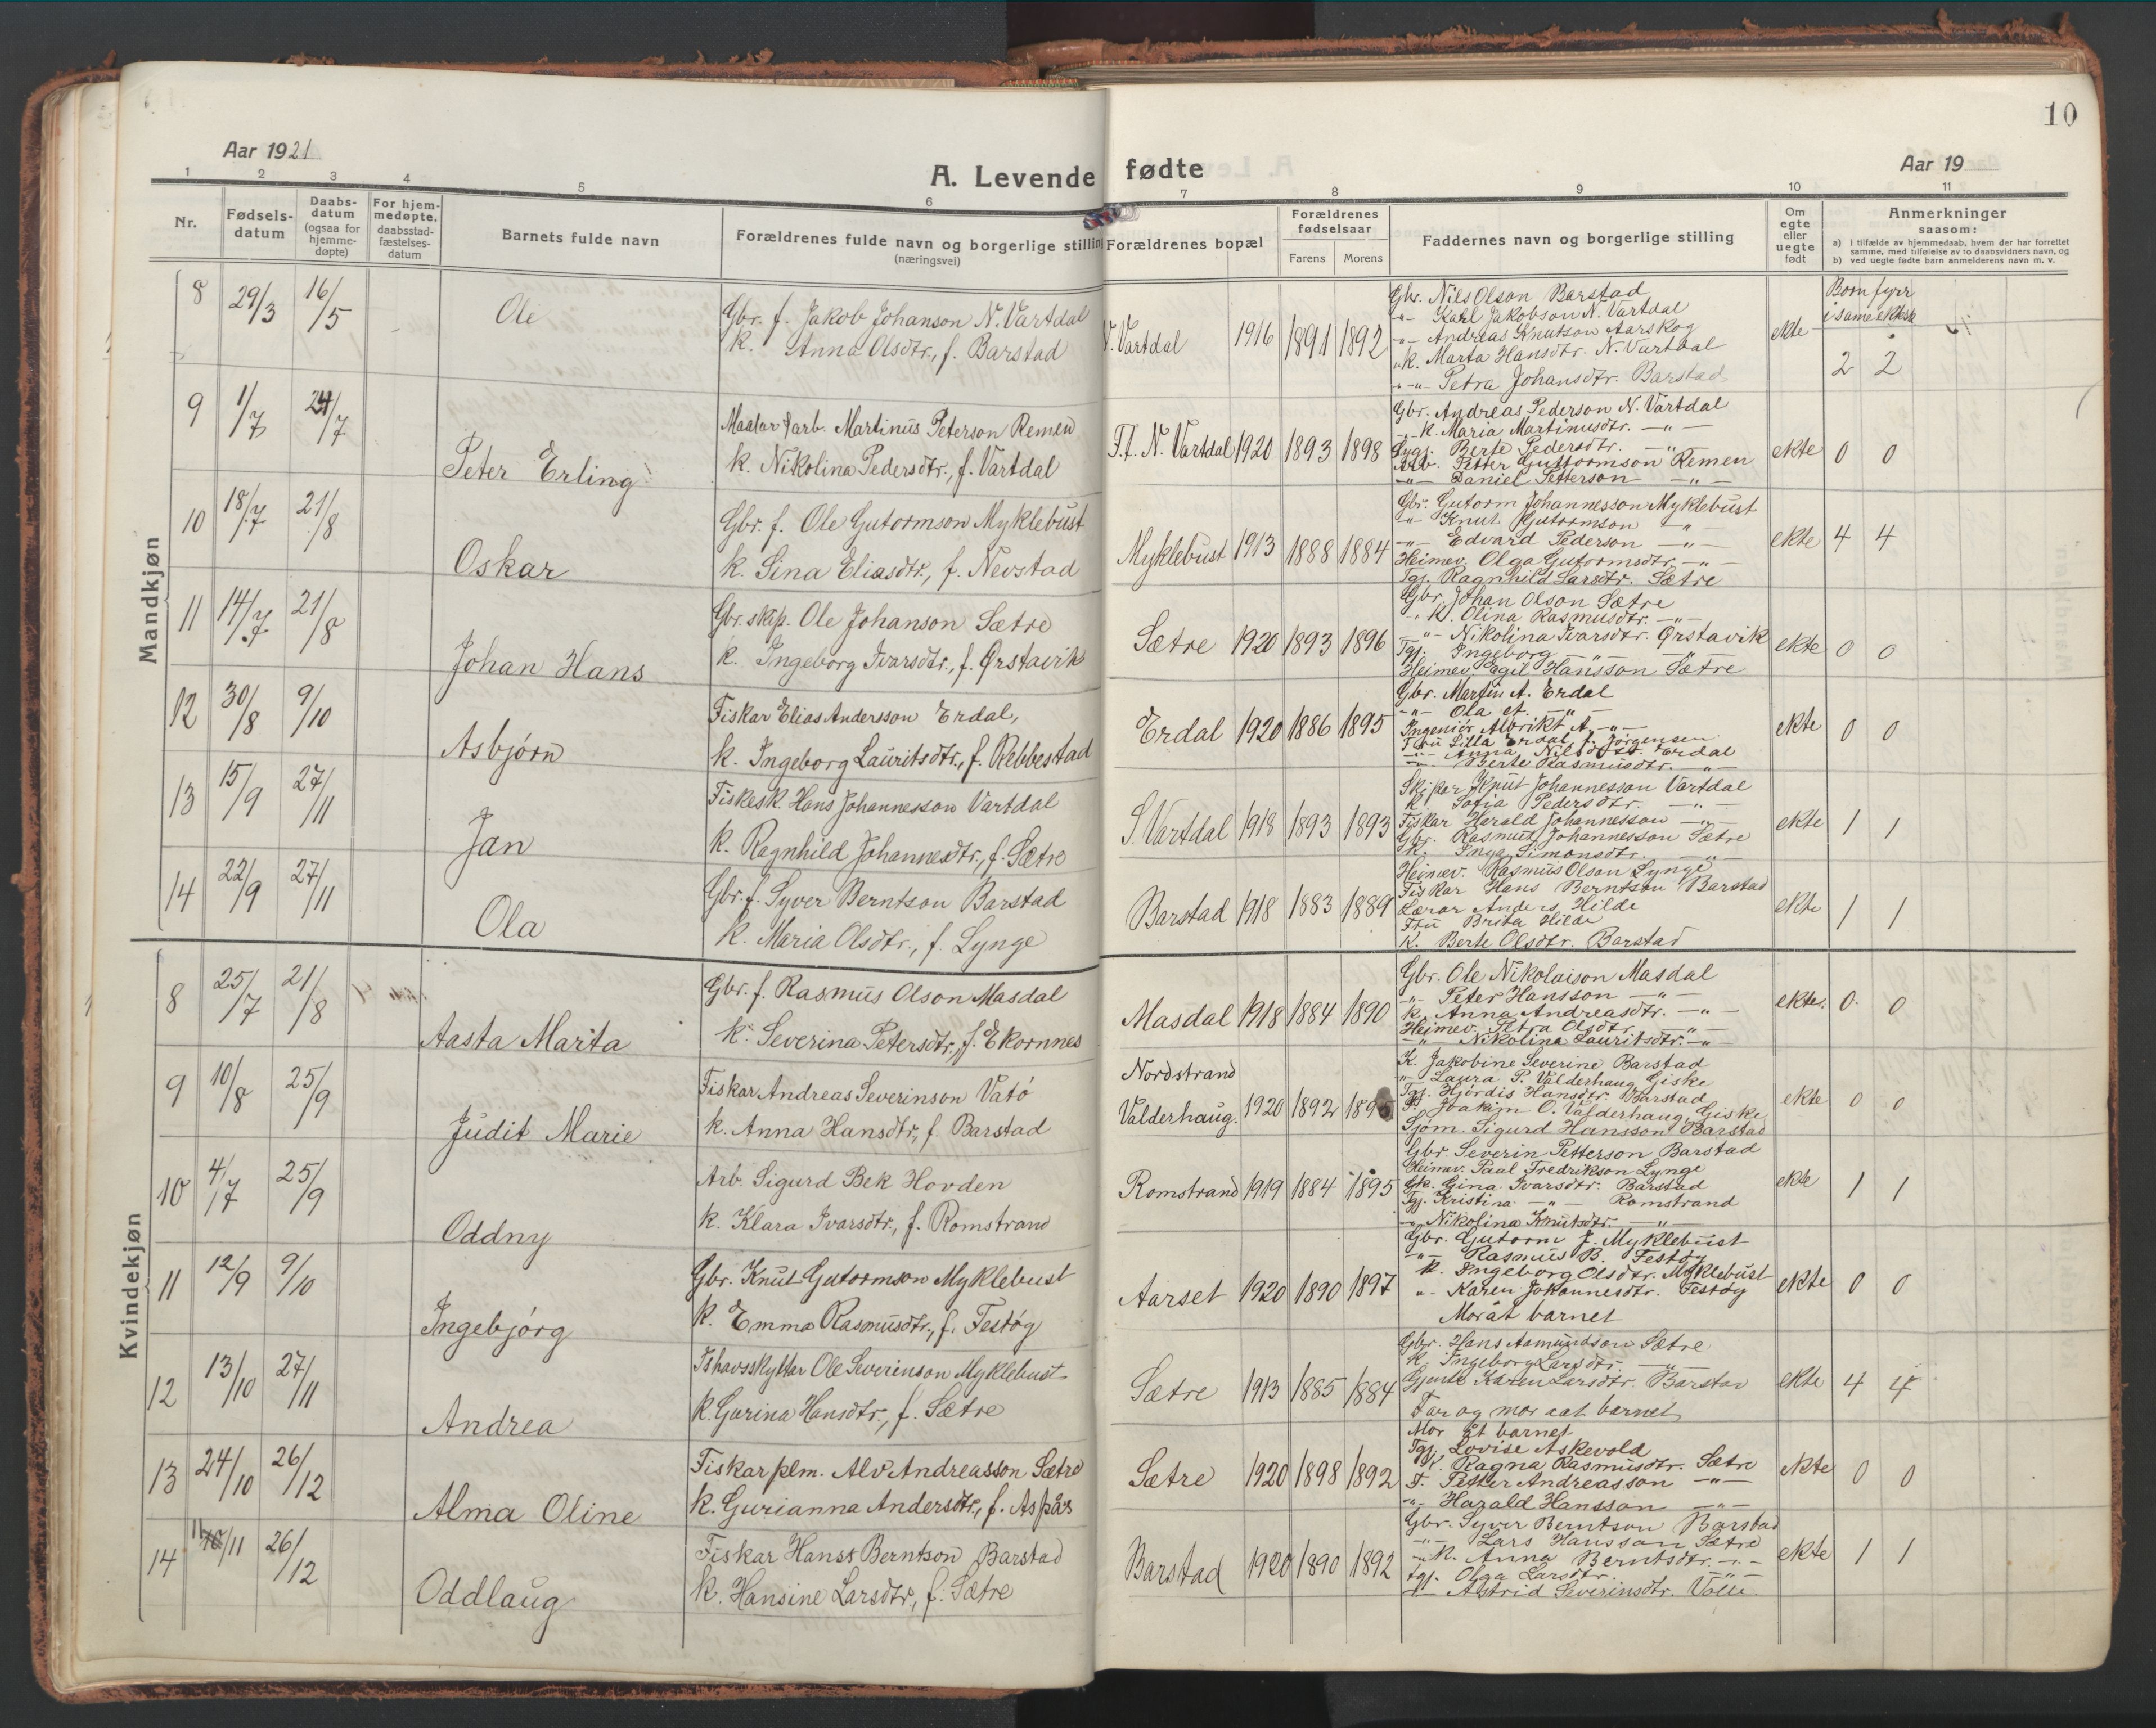 10
Aar 1921
A. Levende fødte
Aar 19
1 2 3 4 5 6 7 8 9 10 11
Nr.
Fødselsdatum
Daabsdatum (ogsaa for hjemmedøpte)
For hjemmedøpte, daabsstadfæstelsesdatum
Barnets fulde navn
Forældrenes fulde navn og borgerlige stilling (næringsvei)
Forældrenes bopæl
Forældrenes fødselsaar
Farens Morens
Faddernes navn og borgerlige stilling
Om egte eller uegte født
Anmerkninger saasom:
a) i tilfælde av hjemmedaab, hvem der har forrettet samme, med tilføielse av to daabsvidners navn, og
b) ved uegte fødte barn anmelderens navn m. v.
Mandkjøn
8 29/3 16/5 Ole
Gbr. f. Jakob Johanson N. Vartdal
k. Anna Olsdtr., f. Barstad
N. Vartdal 1916 1891 1892
Gbr. Nils Olson Barstad
-"- Karl Jakobson N. Vartdal
-"- Andreas Knutson Aarskog
"k. Marta Hansdtr. N. Vartdal
"-"- Petra Johansdtr. Barstad
ekte
Born fyrr
i same ektesk
2 2
9 1/7 24/7 Peter Erling
arb. Martinus Peterson Remen
k. Nikolina Pedersdtr., f. Vartdal
F.t. N. Vartdal 1920 1893 1898
Gbr. Andreas Pederson N. Vartdal
-"- k. Maria Martinusdtr. -"-
Berte Pedersdtr. -"-
Arb. Petter Guttormson Remen
-"- Daniel Petterson -"-
ekte 0 0
10 18/7 21/8 Oskar
Gbr. f. Ole Gutormson Myklebust
k. Sina Eliasdtr., f. Nevstad
Myklebust 1913 1888 1884
Gbr. Gutorm Johannesson Myklebust
-"- Knut Gutormson -"-
-"- Edvard Pederson -"-
Heimev. Olga Gutormsdtr. -"-
Tgj. Ragnhild Larsdtr. Sætre
ekte 4 4
11 14/7 21/8 Johan Hans
Gbr. skip. Ole Johanson Sætre
k. Ingeborg Ivarsdtr., f. Ørstavik
Sætre 1920 1893 1896
Gbr. Johan Olson Sætre
" k. Olina Rasmusdtr. -"-
-"- Nikolina Ivarsdtr. Ørstavik
Tgj. Ingeborg -"- -"-
Heimev. Egil Hansson Sætre
ekte 0 0
12 30/8 9/10 Asbjørn
Fiskar Elias Andersson Erdal,
k. Ingeborg Lauritsdtr., f. Rebbestad
Erdal 1920 1886 1895
Gbr. Martin A. Erdal
-"- Ola A. -"-
Ingeniør Albrikt A. -"-
Fru Silla Erdal f. Jörgensen
-"- Anna Nilsdtr. Erdal
-"- Berte Rasmusdtr. -"-
ekte 0 0
13 15/9 27/11 Jan
Fiskesk. Hans Johannesson Vartdal
k. Ragnhild Johannesdtr., f. Sætre
S. Vartdal 1918 1893 1893
Skipar Knut Johannesson Vartdal
k. Sofia Pedersdtr. -"-
Fiskar Harald Johannesson -"-
Gbr. Rasmus Johannesson Sætre
k. Inga Simonsdtr. -"-
ekte 1 1
14 22/9 27/11 Ola
Gbr. f. Syver Berntson Barstad
k. Maria Olsdtr., f. Lynge
Barstad 1918 1883 1889
Heimev. Rasmus Olson Lynge
Fiskar Hans Berntson Barstad
Lærar Anders Hilde
Fru Brita Hilde
k. Berte Olsdtr. Barstad
ekte 1 1
Kvindekjøn
8 25/7 21/8 Aasta Marita
Gbr. f. Rasmus Olson Masdal
k. Severina Petersdtr., f. Ekornnes
Masdal 1918 1884 1890
Gbr. Ole Nikolaison Masdal
-"- Peter Hansson -"-
k. Anna Andreasdtr. -"-
Heimev. Petra Olsdtr. -"-
-"- Nikolina Lauritsdtr. -"-
ekte. 0 0
9 10/8 25/9 Judit Marie
Fiskar Andreas Severinson Vatö
k. Anna Hansdtr., f. Barstad
Nordstrand
Valderhaug. 1920 1892 1895
K. Jakobine Severine Barstad
-"- Laura P. Valderhaug Giske
Tgj. Hjørdis Hansdtr. Barstad
F. Joakim O. Valderhaug, Giske
Sjøm. Sigurd Hansson Barstad
ekte 0 0
10 4/7 25/9 Oddny
Arb. Sigurd Bek Hovden
k. Klara Ivarsdtr., f. Romstrand
Romstrand 1919 1884 1895
Gbr. Severin Petterson Barstad
Heimev. Paal Fredrikson Lynge
Gk. Gina Ivarsdtr. Barstad
Tgj. Kristina -"- Romstrand
-"- Nikolina Knutsdtr. -"-
ekte 1 1
11 12/9 9/10 Ingebjørg
Gbr. Knut Gutormson Myklebust
k. Emma Rasmusdtr., f. Festøy
Aarset 1920 1890 1897
Gbr. Gutorm J. Myklebust
-"- Rasmus B. Festøy
k. Ingeborg Olsdtr. Myklebust
-"- Karen Johannesdtr. Festøy
Mor åt barnet
ekte 0 0
12 13/10 27/11 Andrea
Ishavsskyttar Ole Severinson Myklebust
k. Gurina Hansdtr., f. Sætre
Sætre 1913 1885 1884
Gbr. Hans Asmundson Sætre
k. Ingeborg Larsdtr. -"-
Gjente Karen Larsdtr. Barstad
Far og mor aat barnet
ekte 4 4
13 24/10 26/12 Alma Oline
Fiskar plm. Alv Andreasson Sætre
k. Gurianna Andersdtr., f. Aspås
Sætre 1920 1898 1892
Mor åt barnet
Tgj. Lovise Askevold
k. Ragna Rasmusdtr. Sætre
F. Petter Andreasson -"-
-"- Harald Hansson -"-
ekte 0 0
14 11/11 26/12 Oddlaug
Fiskar Hans Berntson Barstad
k. Hansine Larsdtr., f. Sætre
Barstad 1920 1890 1892
Gbr. Syver Berntson Barstad
-"- Lars Hansson Sætre
-"- k. Anna Berntsdtr. -"-
Tgj. Olga Larsdtr. -"-
-"- Astrid Severinsdtr. Valle
ekte 1 1